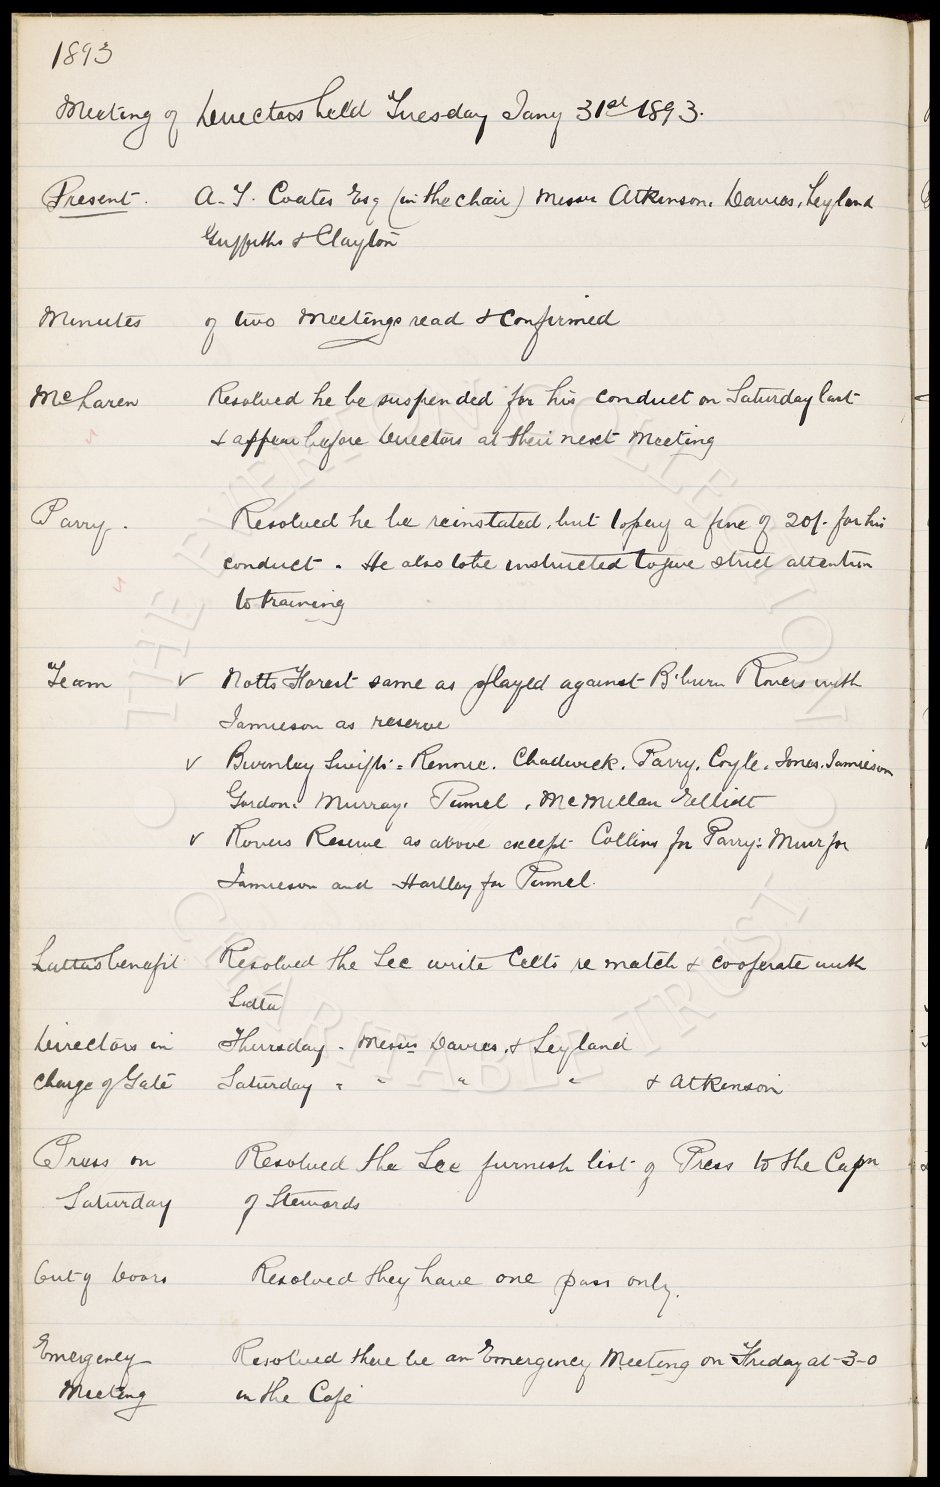 1893
Meeting of Directors held Tuesday Jany 31st 1893.
Present. A. T. Coates Esq (in the chair) Messrs Atkinson, Davies, Leyland
Griffiths & Clayton
Minutes of two Meetings read & confirmed
McLaren Resolved he be suspended for his conduct on Saturday last
& appear before Directors at their next Meeting
Parry. Resolved he be reinstated, but to pay a fine of 20/- for his
conduct. He also to be instructed to give strict attention
to training
Team v Notts Forest same as played against B'burn Rovers with
Jamieson as reserve
v Burnley Swifts = Rennie. Chadwick. Parry. Coyle. Jones. Jamieson
Gordon. Murray. Pinnel. McMillan Elliott
v Rovers Reserve as above except Collins for Parry: Muir for
Jamieson and Hartley for Pinnel.
Lattas benefit Resolved the Sec write Celts re match & cooperate with
Latta
Directors in Thursday. Messrs Davies, & Leyland
charge of Gate Saturday " " " " & Atkinson
Press on Resolved the Sec furnish list of Press to the Capn
Saturday of Stewards
Out of Doors Resolved they have one pass only.
Emergency Resolved there be an Emergency Meeting on Friday at 3-0
Meeting in the Café
THE EVERTON COLLECTION
CHARITABLE TRUST